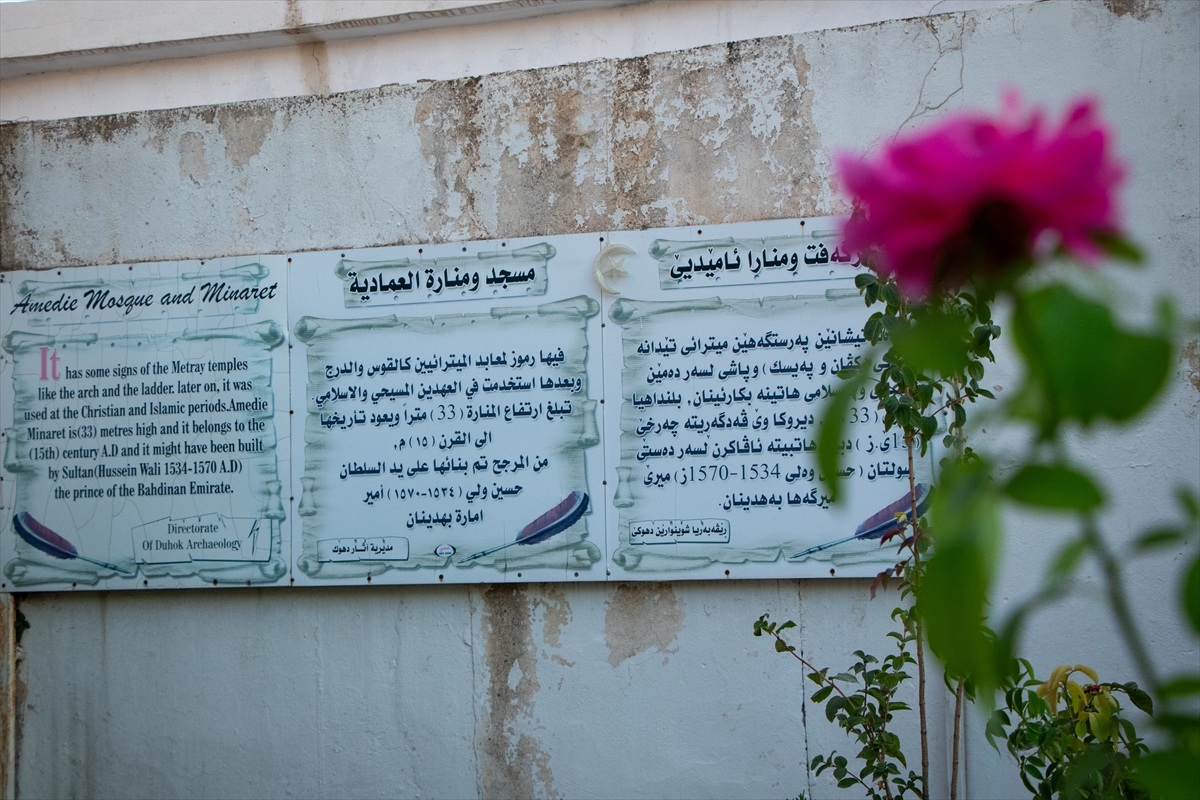 Amedie Mosque and Minaret
It has some signs of the Metray temples
like the arch and the ladder. later on, it was
used at the Christian and Islamic periods.Amedie
Minaret is(33) metres high and it belongs to the
(15th) century A.D and it might have been built
by Sultan(Hussein Wali 1534-1570 A.D)
the prince of the Bahdinan Emirate.
Directorate
Of Duhok Archaeology
مسجد ومنارة العمادية
فيها رموز لمعابد الميترائيين كالقوس والدرج
وبعدها استخدمت في العهدين المسيحي والاسلامي
تبلغ ارتفاع المنارة (33) مترا ويعود تأريخها
الى القرن (١٥) م.
من المرجح تم بنائها على يد السلطان
حسين ولي (١٥٣٤-١٥٧٠) أمير
امارة بهدينان
مديرية آثار دهوك
ومنارا ئامێدیێ
پەرستگەهێن میترائی تێدانە
کڤان و پەیسك) وپاشی لسەر دەمێن
هاتینە بکارئینان, بلنداهیا
(33) دیروکا وێ ڤەدگەڕیتە چەرخێ
هاتبیتە ئاڤاکرن لسەر دەستێ
سولتان وەلی 1534-1570ز) میرێ
میرگەها بەهدینان.
رێڤەبەریا شوینوارێن دهوکێ